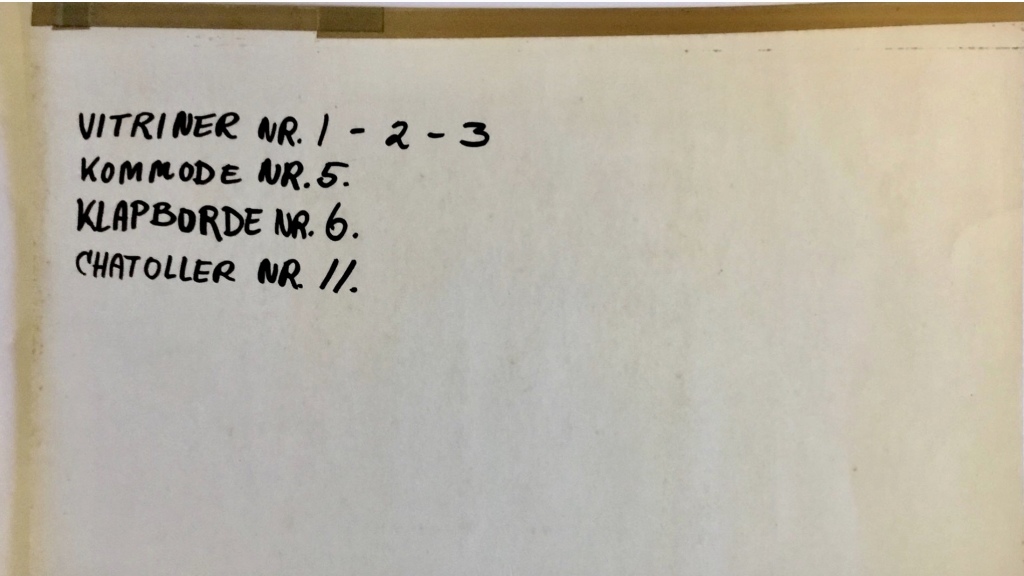 VITRINER NR. 1 - 2 - 3
KOMMODE NR. 5.
KLAPBORDE NR. 6.
CHATOLLER NR. 11.